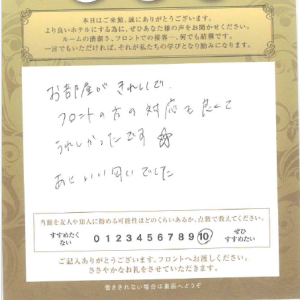 本日はご来館、誠にありがとうございます。
より良いホテルにする為に、ぜひあなた様の声をお聞かせください。
ルームの清潔さ、フロントでの接客…、何でも結構です。
一言でもいただければ、それが私たちの学びとなり励みになります。
お部屋がきれいで、
フロントの方の対応も良くて
うれしかったです☆
あと いい匂いでした
当館を友人や知人に勧める可能性はどのくらいあるか、点数で教えてください。
すすめたくない 0 1 2 3 4 5 6 7 8 9 10 ぜひすすめたい
ご記入ありがとうございます。フロントへお渡しください。
ささやかなお礼をさせていただきます。
書ききれない場合は裏面へどうぞ